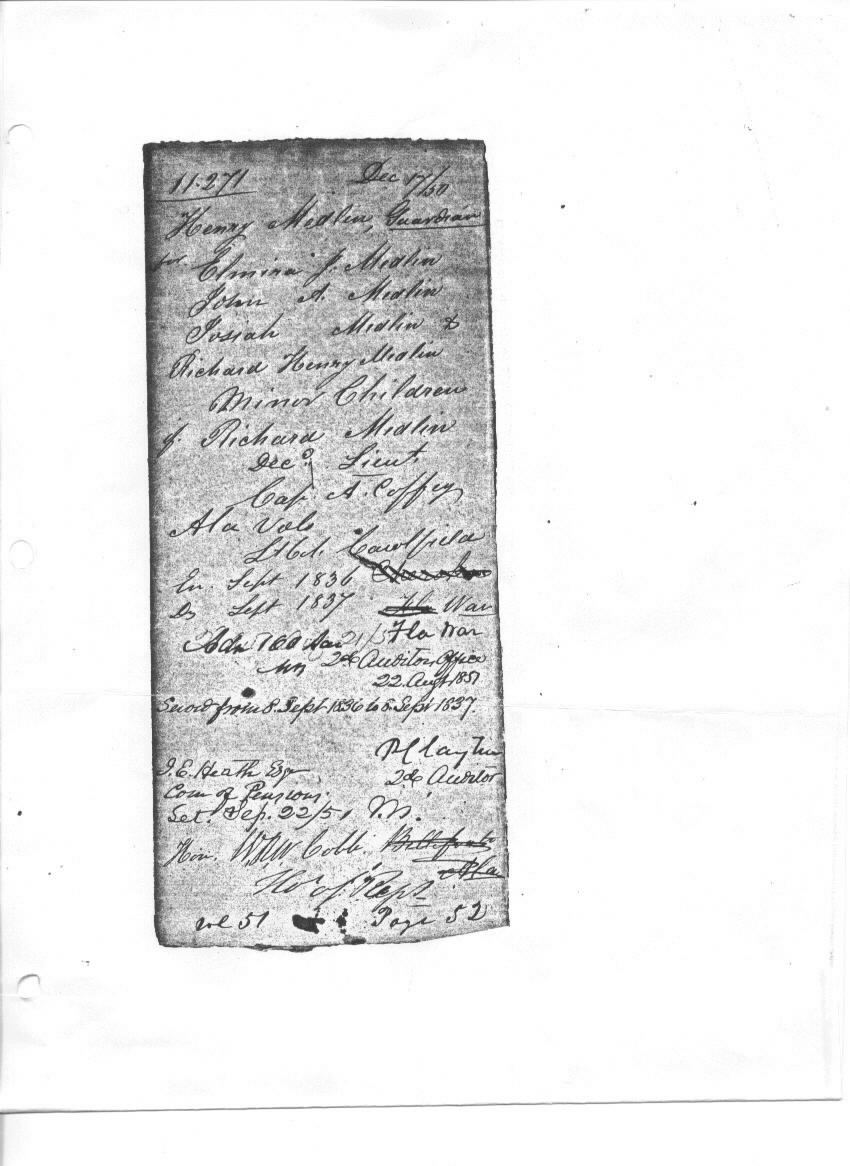 11.271 Dec 17/50
Henry Medlin, Guardian
for Elmina J. Medlin
John A. Medlin
Josiah Medlin &
Richard Henry Medlin
Minor Children
of Richard Medlin
Decd Lieut.
Cap. A. Coffey
Ala Vols
Lt Col. Cawlfield
En. Sept 1836
Ds Sept 1837 War
160 Fla War
2d Auditors Office
22 Augt 1851
Served from 8. Sept 1836 to 8 Sept 1837.
P Clayton
2d Auditor
J. E. Heath Esqr
Com of Pensions.
Sep. 22/51
Hon. W.R.W. Cobb.
Ho. of Reps.
vol 51 Page 52